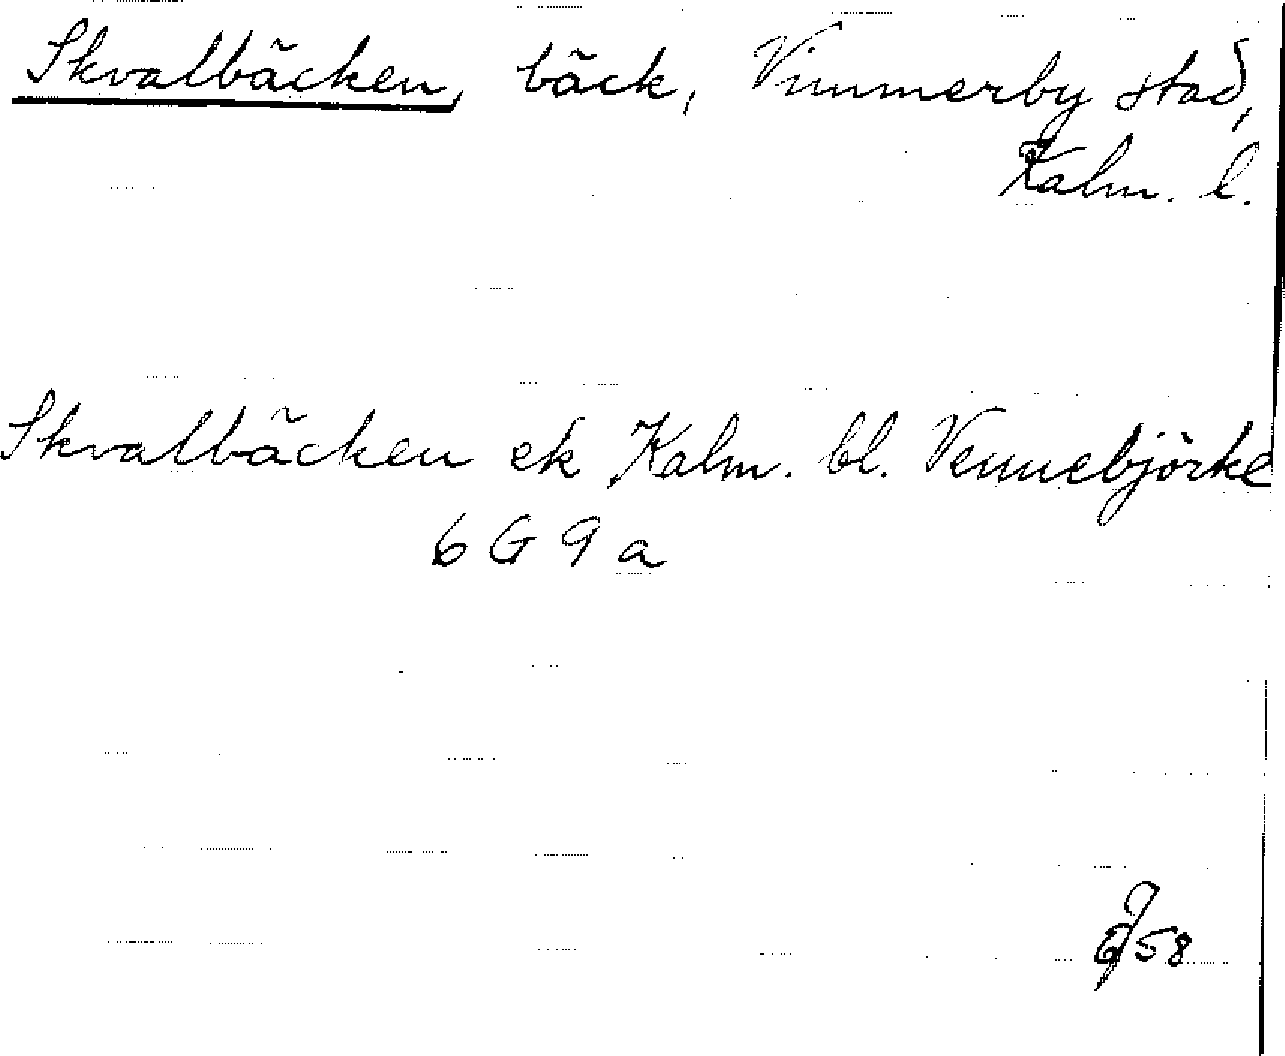 Skvalbäcken, bäck, Vimmerby stad,
Kalm. l.
Skvalbäcken ek Kalm. bl. Vennebjörke
6 G 9 a
58